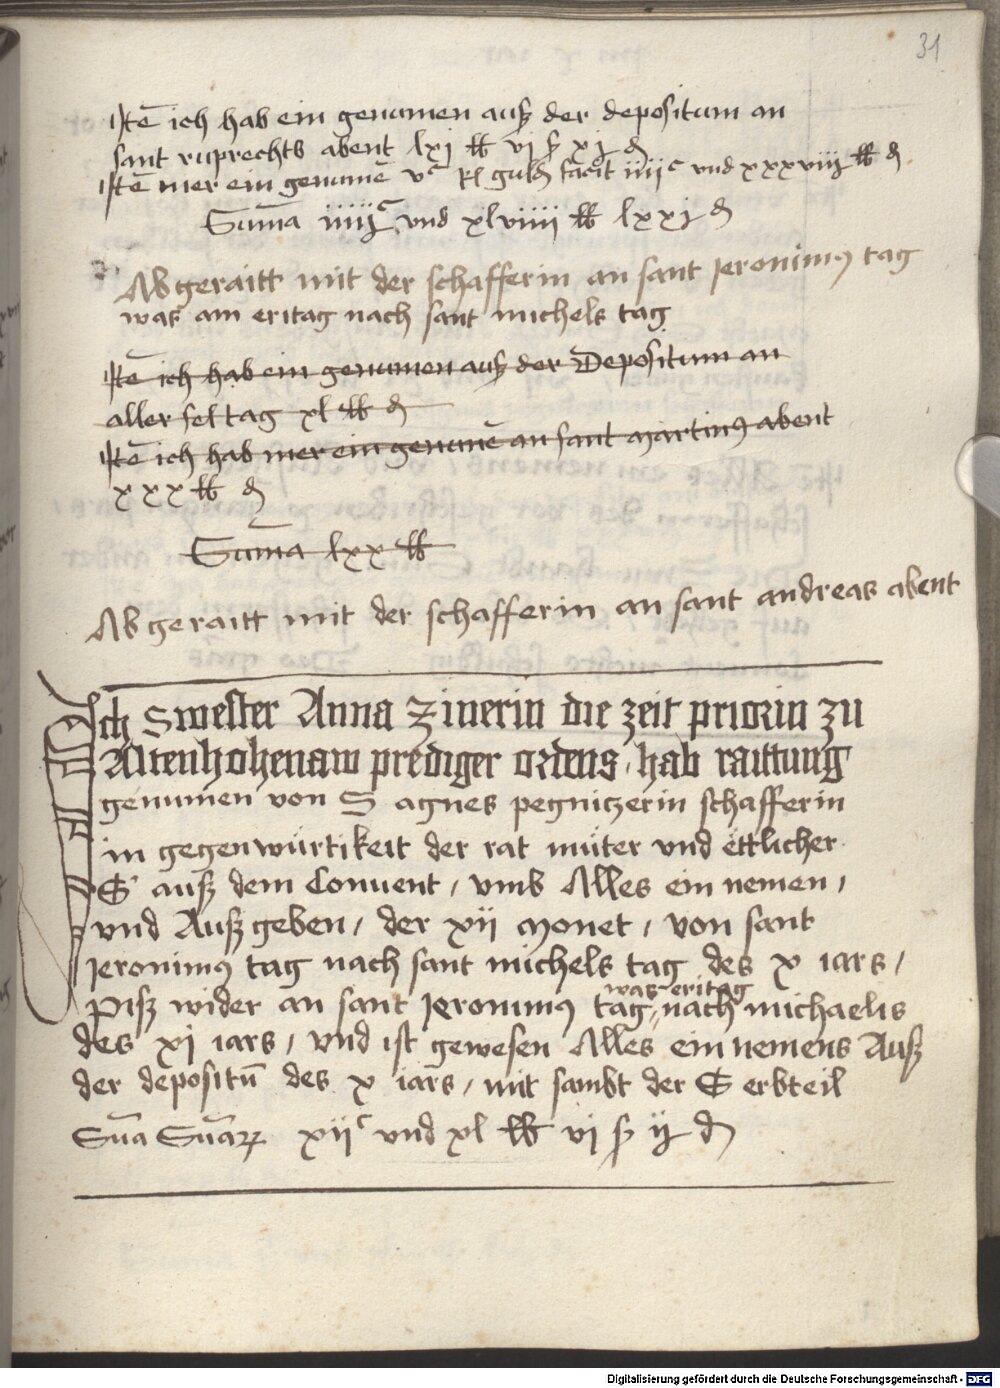 31
Itē ich hab ein genumen auß der depositum an
sant ruprechts abent lxj lb vj ß xj d
Itē mer ein genumē vᶜ Rl guld facit iiijᶜ vnd xxxviij lb d
Sum̄a iiijᶜ vnd xlviiii lb lxxj d
Abgeraitt mit der schafferin an sant Jeronimus tag
was am eritag nach sant michels tag
Itē ich hab ein genumen auß der Depositum an
aller sel tag xl lb d
Itē ich hab mer ein genumē an sant martinus abent
xxx lb d
Sum̄a lxx lb
Ab geraitt mit der schafferin an sant andreas abent
Ich Swester Anna Zinerin die zeit priorin zu
Altenhohenaw prediger ordens / hab raittung
genumen von S agnes pegnitzerin schafferin
in gegenwürtikeit der rat müter vnd ettlicher
S auß dem Conuent / vmb Alles ein nemen /
vnd Außgeben / der xij monet / von sant
Jeronimus tag nach sant michels tag des x iars /
was eritag
Piß wider an sant Jeronimus tag nach michaelis
des xj iars / vnd ist gewesen Alles ein nemens Auß
der depositū des x iars / mit sambt der S erbteil
Sūa Sūaꝝ xijᶜ vnd xl lb vj ß ij d
Digitalisierung gefördert durch die Deutsche Forschungsgemeinschaft - DFG